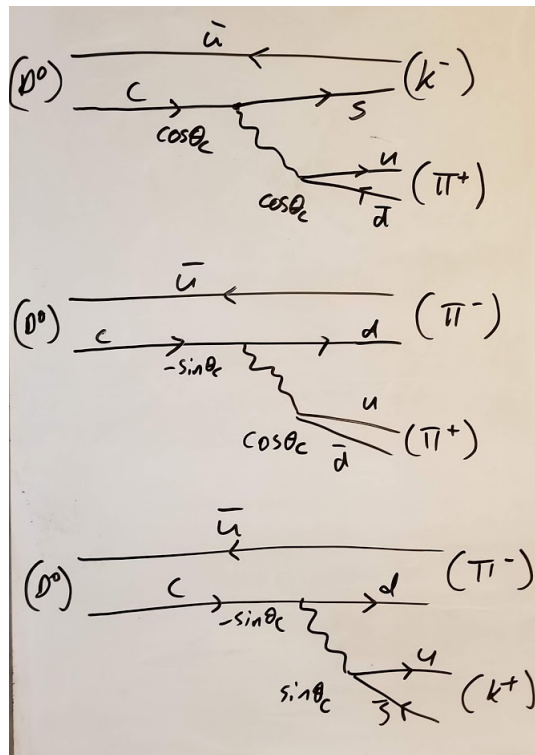 ū
(D⁰) (k⁻)
c s
cosθc
u
cosθc (π⁺)
d̄
ū
(D⁰) (π⁻)
c d
-sinθc
u
cosθc (π⁺)
d̄
ū
(D⁰) (π⁻)
c d
-sinθc
u
sinθc (k⁺)
s̄